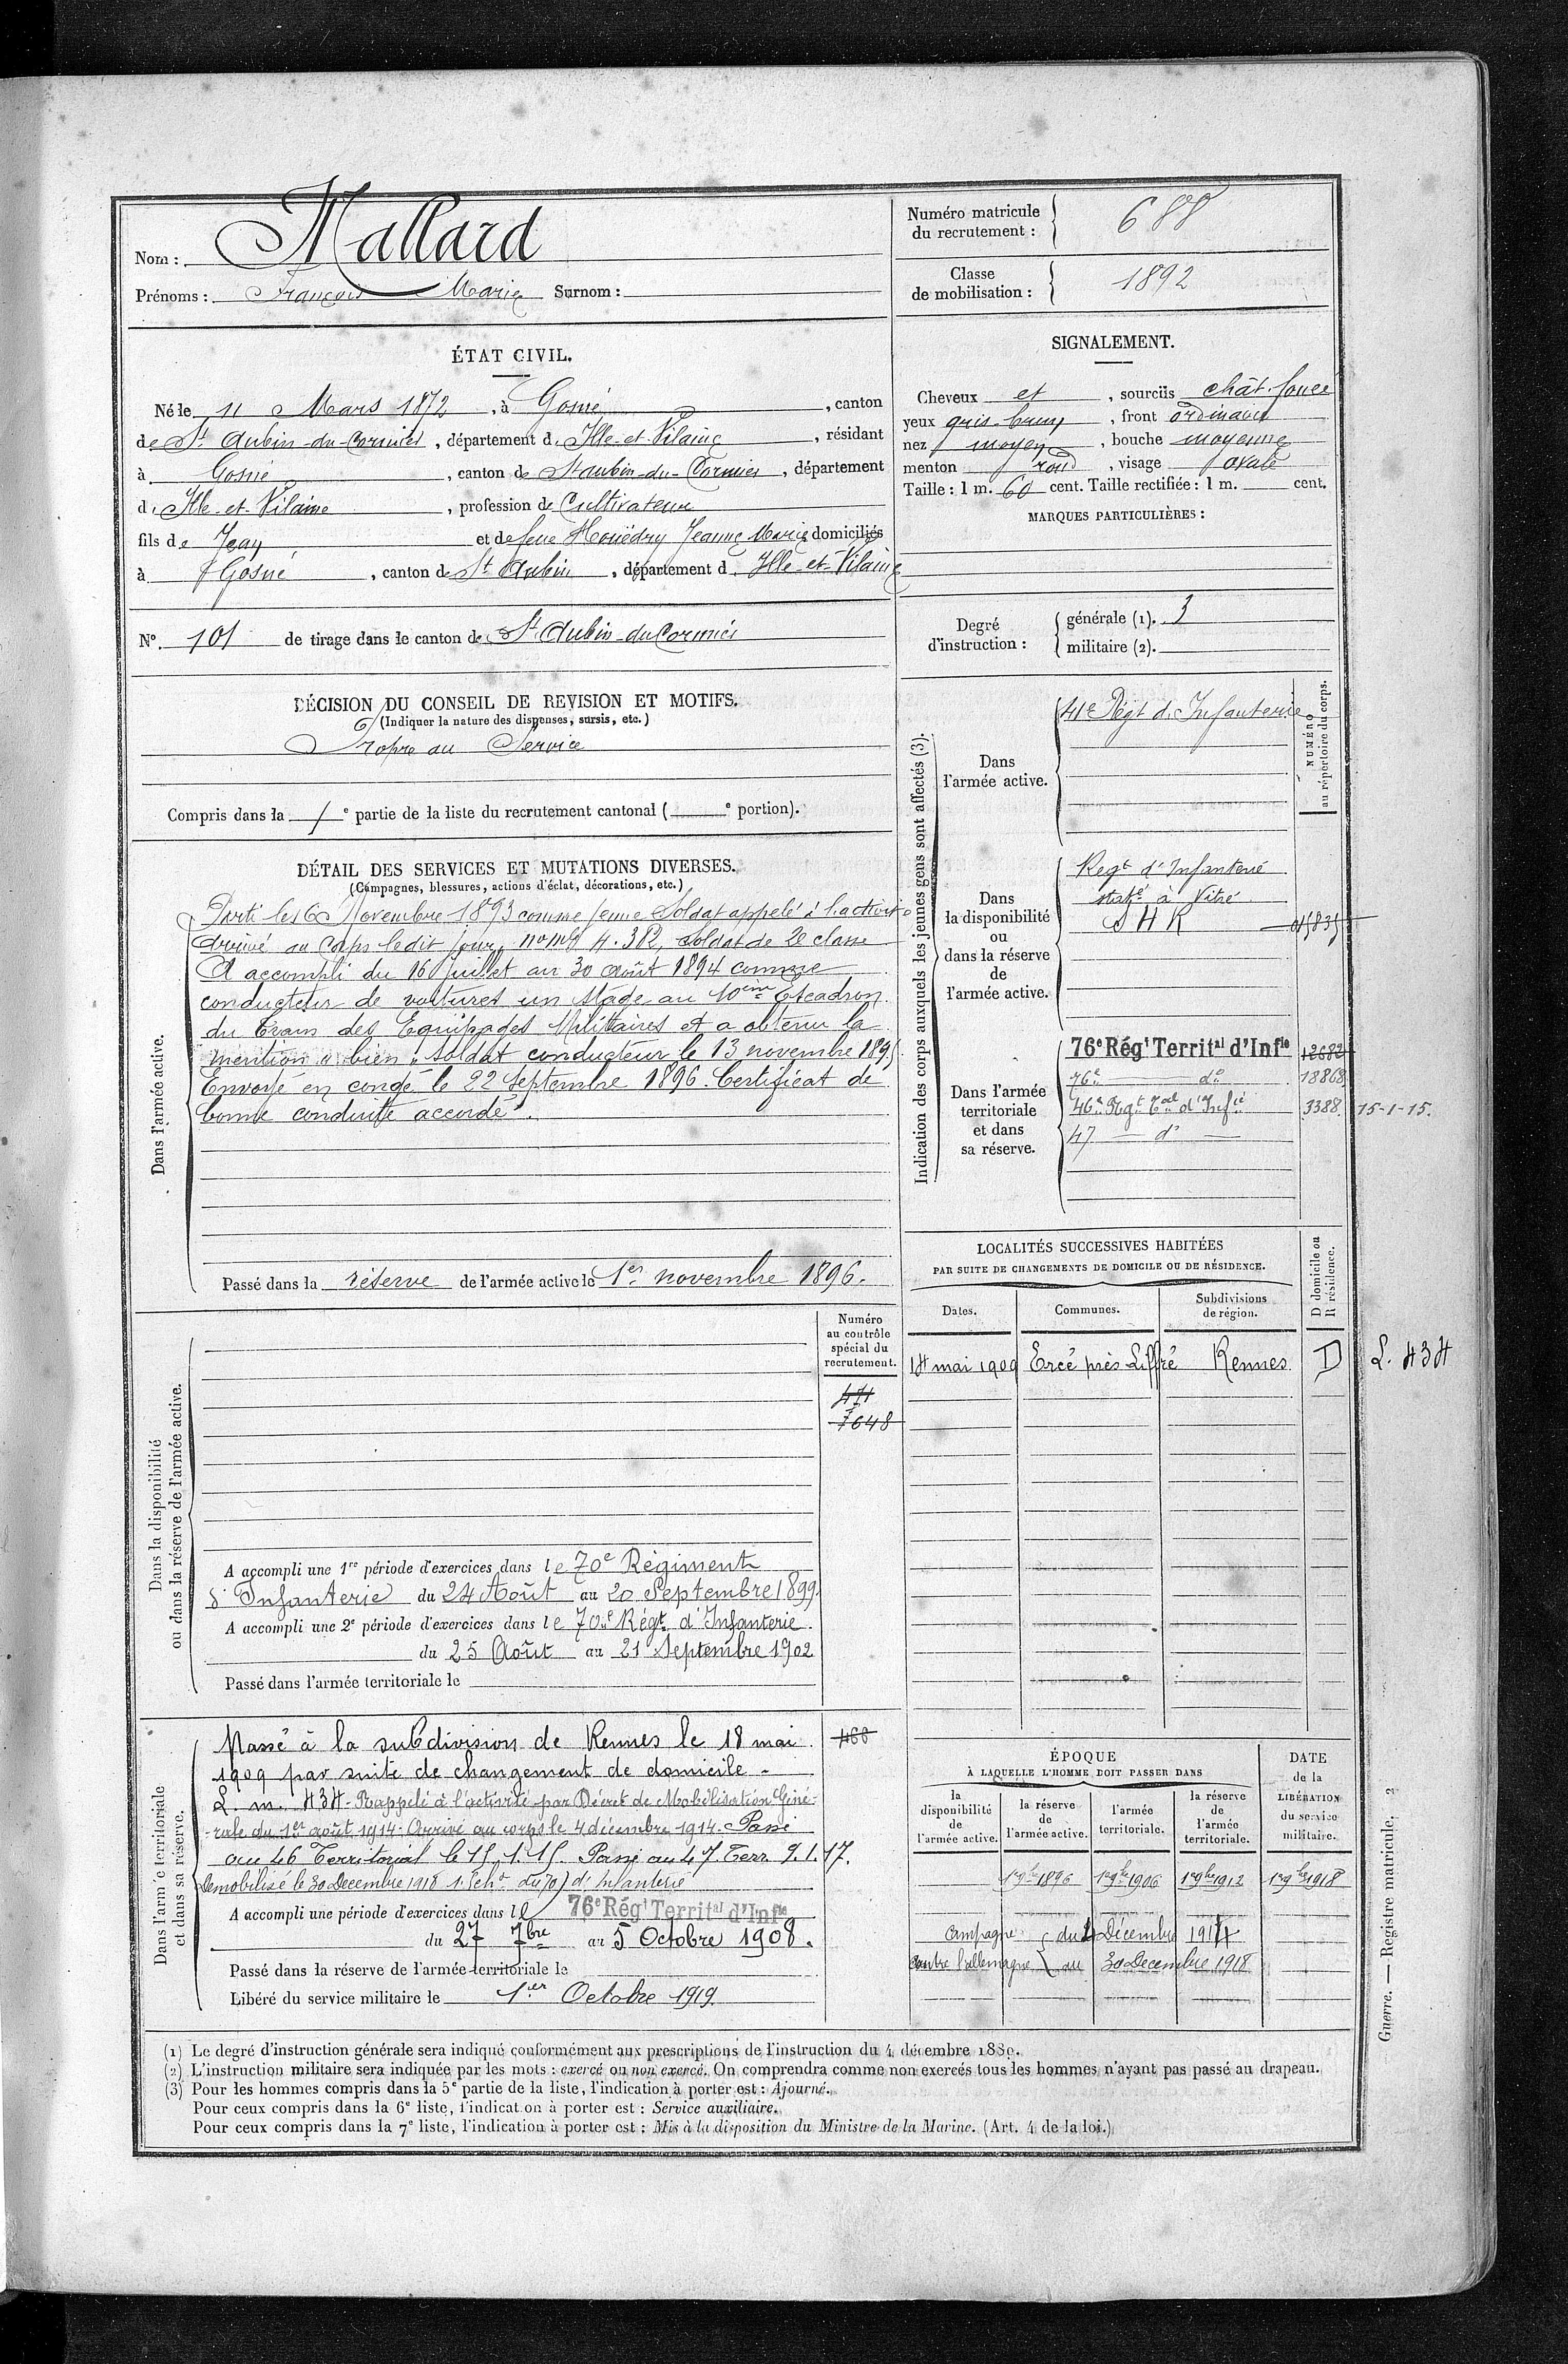 Nom : Mallard
Prénoms : François Marie Surnom :
Numéro matricule du recrutement : 688
Classe de mobilisation : 1892
ÉTAT CIVIL.
Né le 11 Mars 1872, à Gosné, canton
de St Aubin-du-Cormier, département d'Ille-et-Vilaine, résidant
à Gosné, canton de St aubin-du-Cormier, département
d'Ille-et-Vilaine, profession de Cultivateur
fils de Jean et de feue Houëdry Jeanne Marie domiciliés
à Gosné, canton de St Aubin, département d'Ille-et-Vilaine
N° 101 de tirage dans le canton de St Aubin-du-Cormier
SIGNALEMENT.
Cheveux et, sourcils chât. foncé
yeux gris brun, front ordinaire
nez moyen, bouche moyenne
menton rond, visage ovale
Taille : 1 m. 60 cent. Taille rectifiée : 1 m. cent.
MARQUES PARTICULIÈRES :
Degré d'instruction : générale (1). 3
militaire (2).
DÉCISION DU CONSEIL DE REVISION ET MOTIFS.
(Indiquer la nature des dispenses, sursis, etc.)
Propre au Service
Compris dans la 1e partie de la liste du recrutement cantonal ( e portion).
DÉTAIL DES SERVICES ET MUTATIONS DIVERSES.
(Campagnes, blessures, actions d'éclat, décorations, etc.)
Dans l'armée active.
Parti le 16 Novembre 1893 comme jeune Soldat appelé à l'activité
Arrivé au Corps ledit jour, no mle 4.382, soldat de 2e classe
A accompli du 16 juillet au 30 août 1894 comme
conducteur de voitures un stage au 10ème Escadron
du Train des Equipages Militaires et a obtenu la
mention « bien » soldat conducteur le 13 novembre 1895
Envoyé en congé le 22 Septembre 1896. Certificat de
bonne conduite accordé.
Passé dans la réserve de l'armée active le 1er novembre 1896.
Indication des corps auxquels les jeunes gens sont affectés (3).
NUMÉRO au répertoire du corps.
Dans l'armée active.
41e Régt d'Infanterie
Dans la disponibilité ou dans la réserve de l'armée active.
Regt d'Infanterie
staté à Vitré
S H R
Dans l'armée territoriale et dans sa réserve.
76e Régt Territal d'Infie 12682
76e do 18868
46e Rgt Tal d'Infie 3388 15-1-15.
47 — do —
LOCALITÉS SUCCESSIVES HABITÉES
PAR SUITE DE CHANGEMENTS DE DOMICILE OU DE RÉSIDENCE.
Dates. Communes. Subdivisions de région. D domicile ou R résidence.
18 mai 1909 Ercé près Liffré Rennes D L. 434
Dans la disponibilité ou dans la réserve de l'armée active.
Numéro au contrôle spécial du recrutement.
471
7648
A accompli une 1re période d'exercices dans le 70e Régiment
d'Infanterie du 24 Août au 20 Septembre 1899.
A accompli une 2e période d'exercices dans le 70e Régt d'Infanterie
du 25 Août au 21 Septembre 1902
Passé dans l'armée territoriale le
Dans l'armée territoriale et dans sa réserve.
Passé à la subdivision de Rennes le 18 mai 460
1909 par suite de changement de domicile -
L. m. 434 - Rappelé à l'activité par Décret de Mobilisation Géné-
-rale du 1er août 1914. Arrivé au corps le 4 décembre 1914. Passé
au 46 Territorial le 15.1.15. Passé au 47 Terr. 9.1.17.
Démobilisé le 30 Decembre 1918 1. Echon du 70 d'infanterie
A accompli une période d'exercices dans le 76e Régt Territal d'Infie
du 27 7bre au 5 Octobre 1908.
Passé dans la réserve de l'armée territoriale le
Libéré du service militaire le 1er Octobre 1919
ÉPOQUE
À LAQUELLE L'HOMME DOIT PASSER DANS
la disponibilité de l'armée active. la réserve de l'armée active. l'armée territoriale. la réserve de l'armée territoriale. DATE de la LIBÉRATION du service militaire.
1er 9bre 1896 1er 9bre 1906 1er 9bre 1912 1er 9bre 1918
Campagne du 4 Décembre 1914
contre l'allemagne au 30 Decembre 1918
(1) Le degré d'instruction générale sera indiqué conformément aux prescriptions de l'instruction du 4 décembre 1889.
(2) L'instruction militaire sera indiquée par les mots : exercé ou non exercé. On comprendra comme non exercés tous les hommes n'ayant pas passé au drapeau.
(3) Pour les hommes compris dans la 5e partie de la liste, l'indication à porter est : Ajourné.
Pour ceux compris dans la 6e liste, l'indication à porter est : Service auxiliaire.
Pour ceux compris dans la 7e liste, l'indication à porter est : Mis à la disposition du Ministre de la Marine. (Art. 4 de la loi.)
Guerre. — Registre matricule. 2